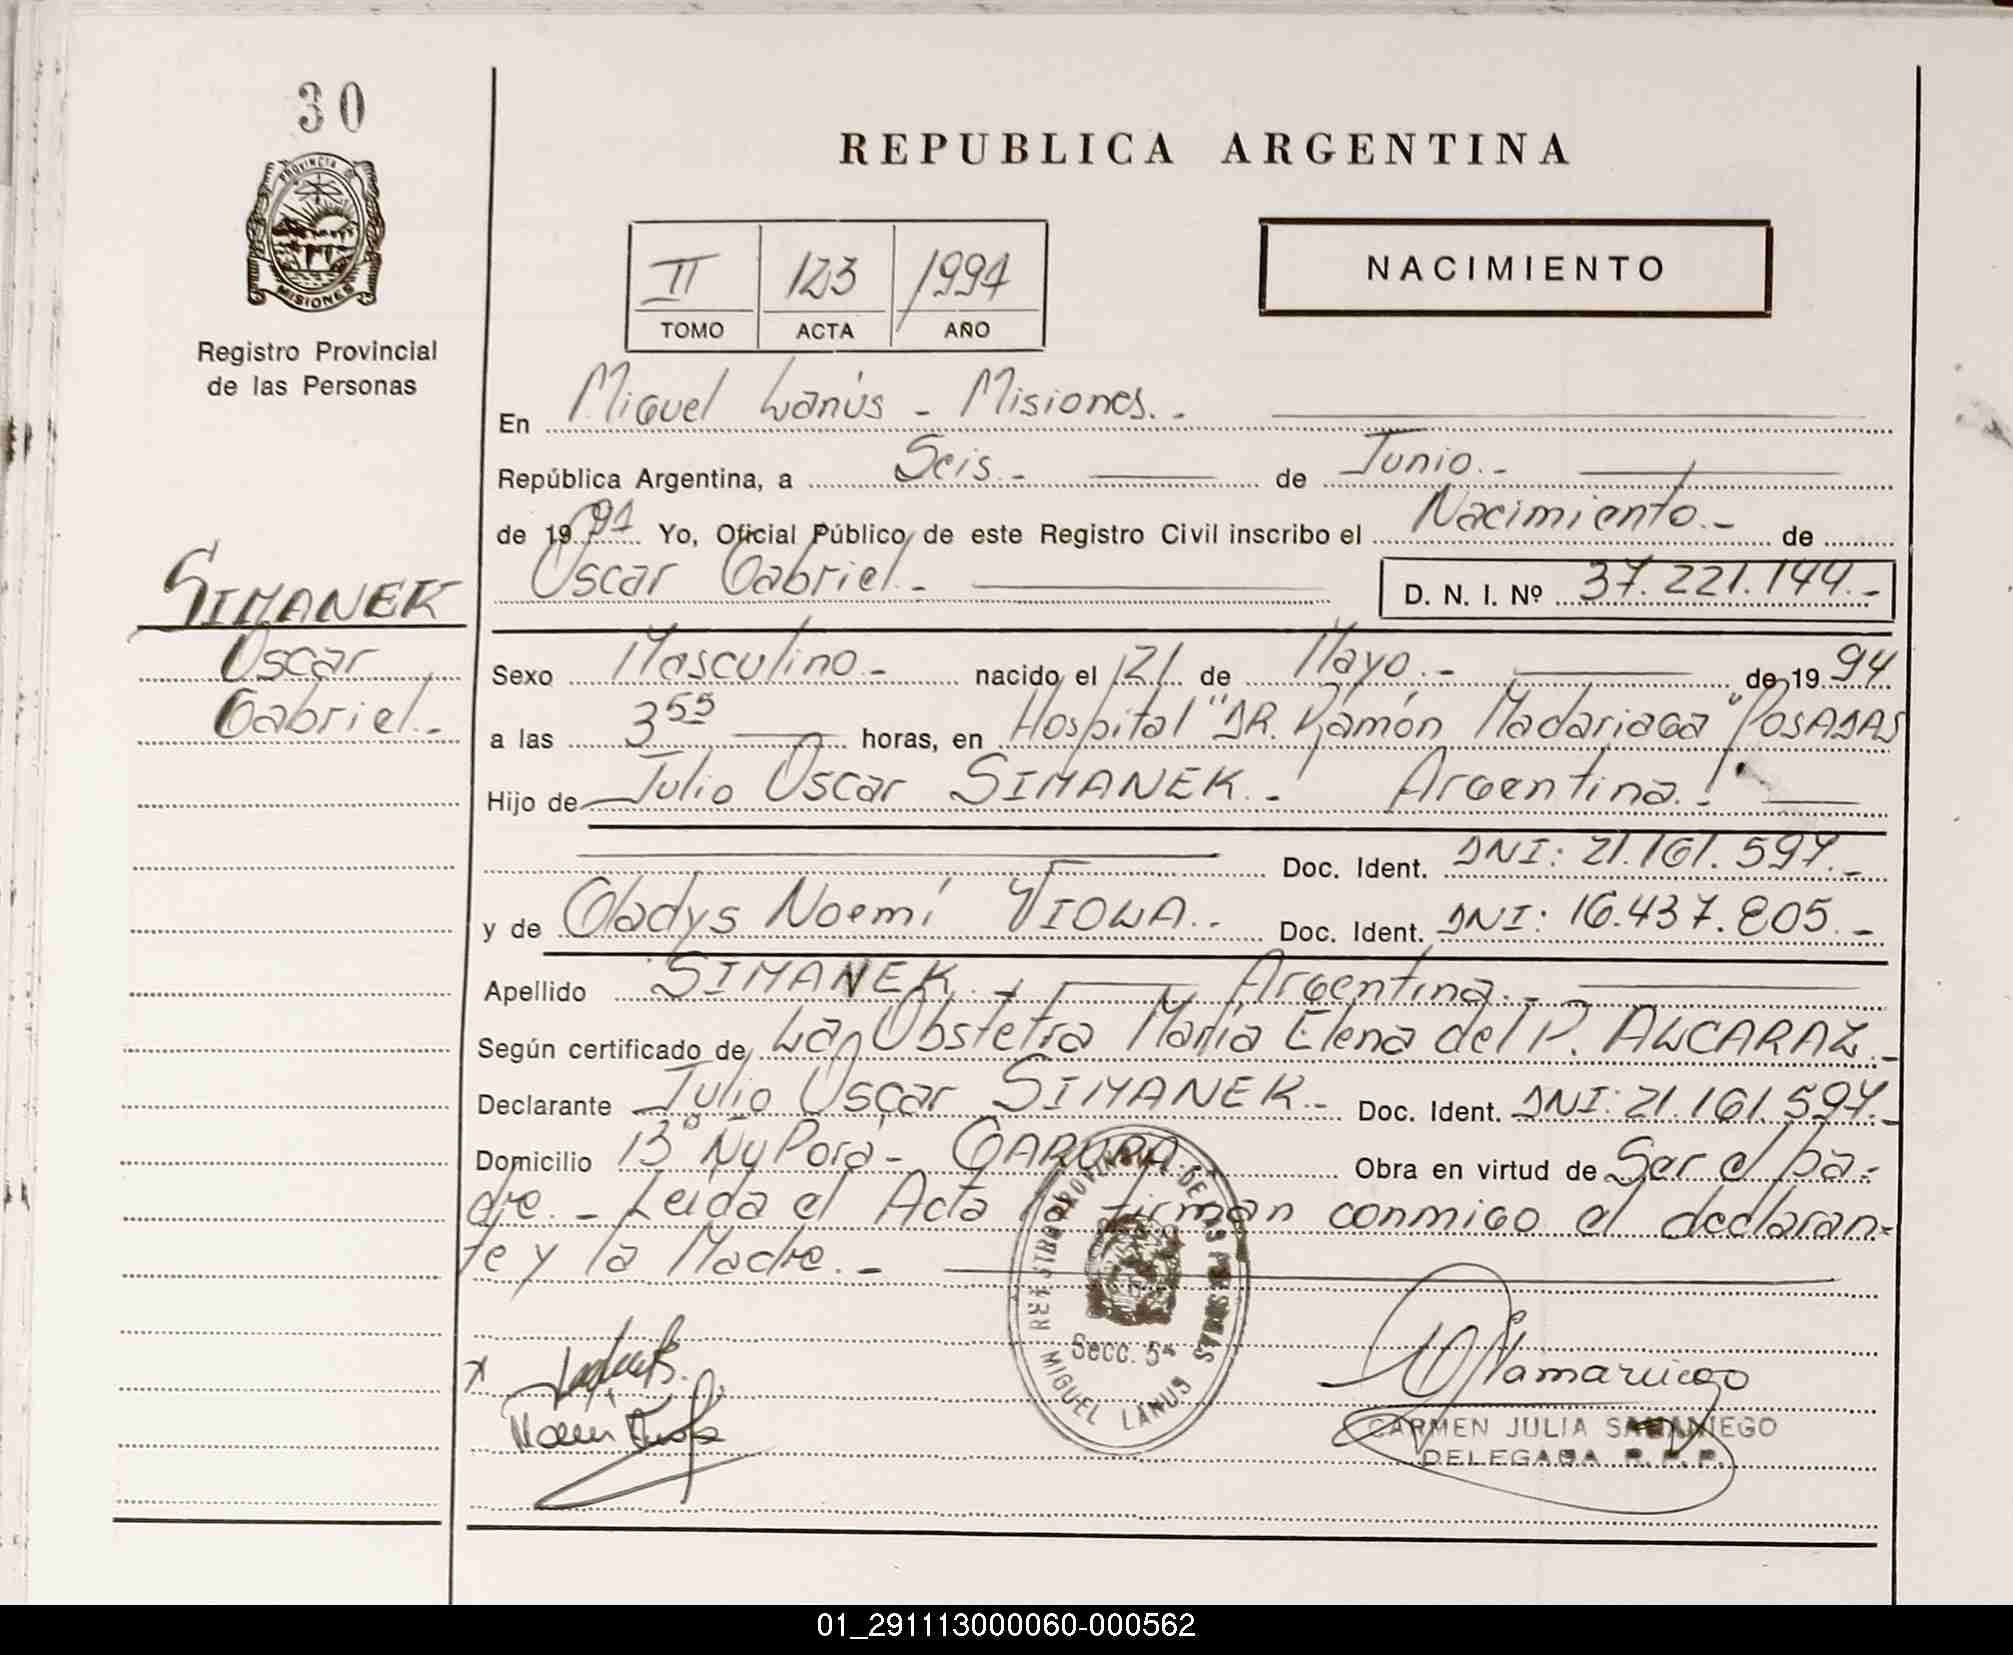 30
PROVINCIA DE
MISIONES
Registro Provincial
de las Personas
REPUBLICA ARGENTINA
II 123 1994
TOMO ACTA AÑO
NACIMIENTO
En Miguel Lanús - Misiones.-
República Argentina, a Seis.- de Junio.-
de 1994 Yo, Oficial Público de este Registro Civil inscribo el Nacimiento.- de
Oscar Gabriel.- D. N. I. Nº 37.221.144.-
SIMANEK
Oscar
Gabriel.-
Sexo Masculino.- nacido el 21 de Mayo.- de 1994
a las 3 55 horas, en Hospital "DR. Ramón Madariaga" POSADAS
Hijo de Julio Oscar SIMANEK.- Argentina.!
Doc. Ident. DNI: 21.161.594.-
y de Gladys Noemí VIOLA.- Doc. Ident. DNI: 16.437.805.-
Apellido SIMANEK.- Argentina.-
Según certificado de La Obstetra María Elena del P. ALCARAZ.-
Declarante Julio Oscar SIMANEK.- Doc. Ident. DNI: 21.161.594.-
Domicilio Bº Ñu Porá - GARUPA.- Obra en virtud de Ser el pa-
dre.- Leída el Acta la firman conmigo el declaran-
te y la Madre.-
REGISTRO PROVINCIAL DE LAS PERSONAS
Secc. 5ª
MIGUEL LANUS
CARMEN JULIA SAMANIEGO
DELEGADA R. P. P.
01_291113000060-000562